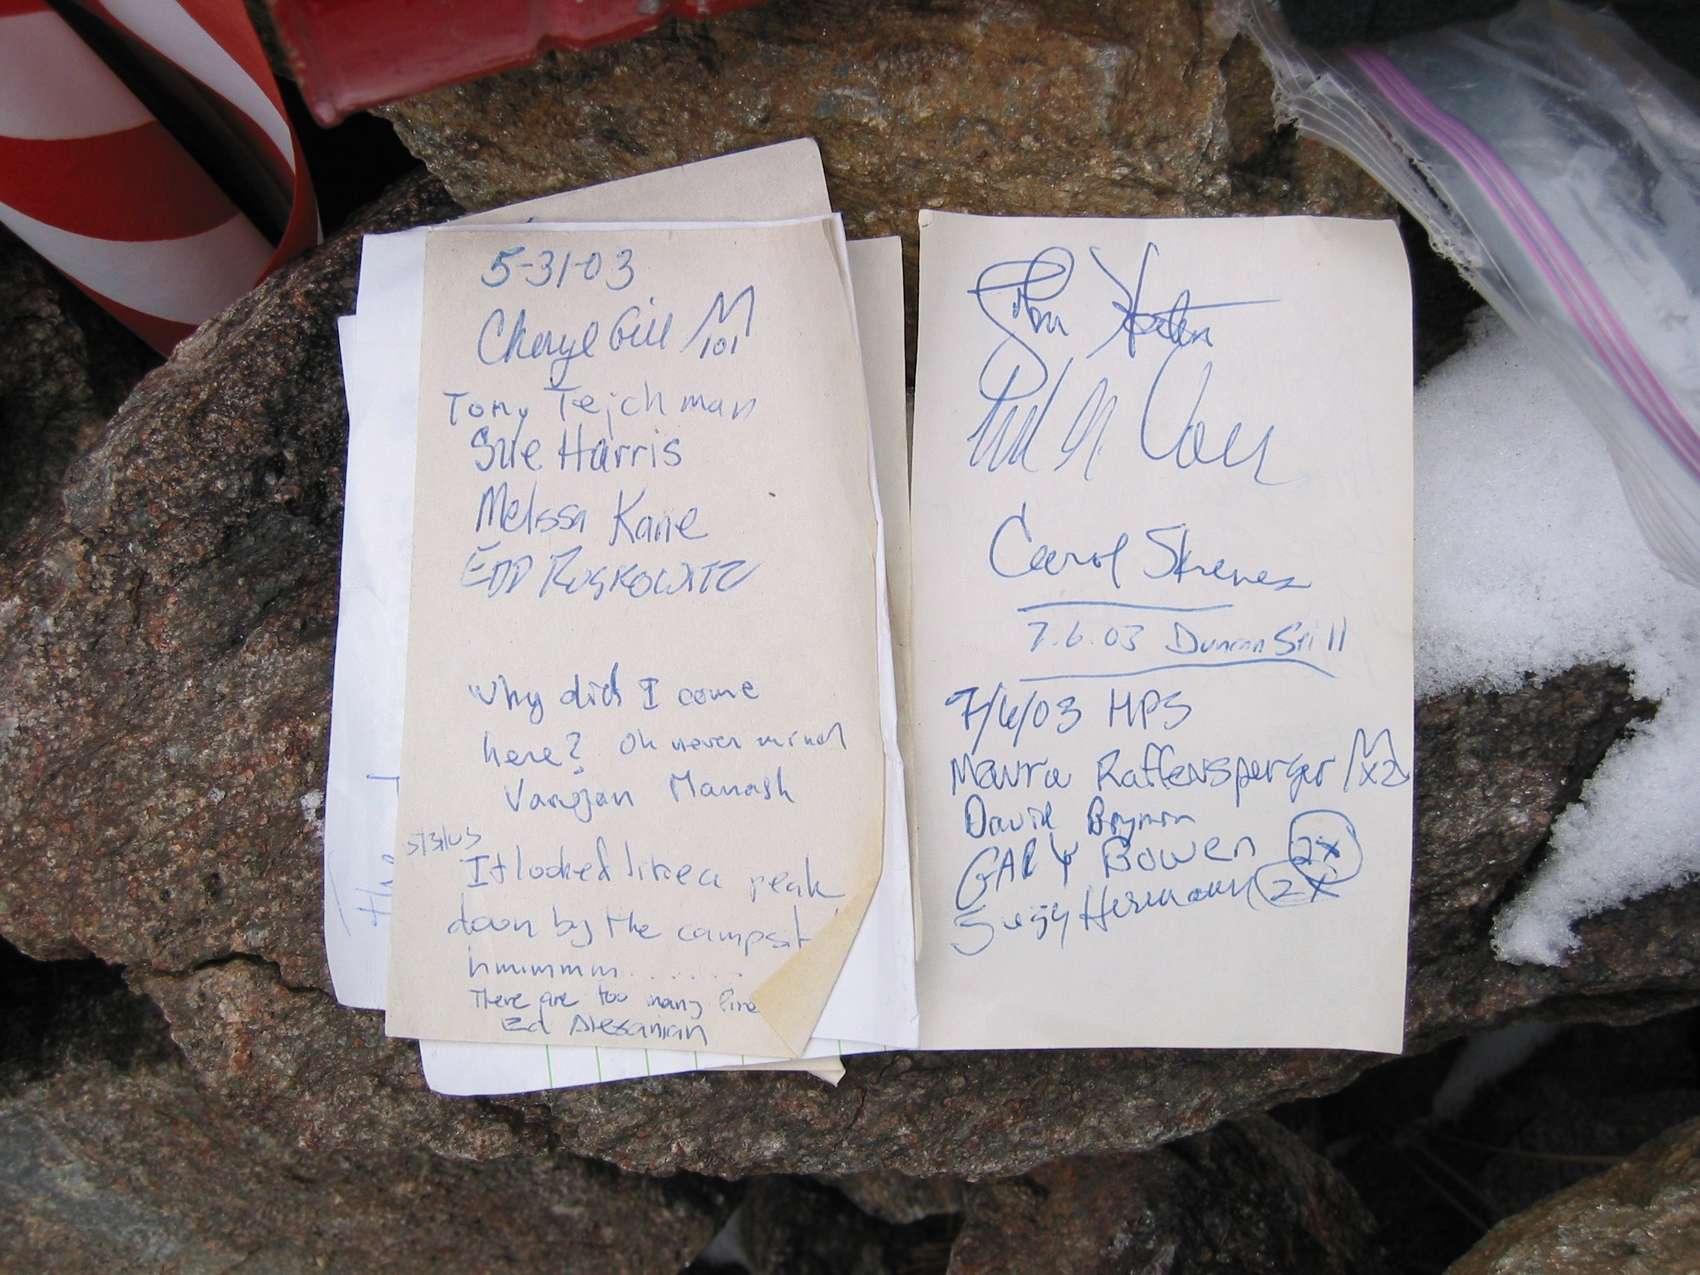 5-31-03
Cheryl Gill M 101
Tony Tejchman
Sue Harris
Melissa Kane
EDD RUSKOWITZ
Why did I come
here? Oh never mind
Vargjan Manash
5/31/03
It looked like a peak
down by the campsit
hmimmm.......
There are too many fine
Ed Alexanian
Carol
7.6.03 Duncan Spill
7/6/03 HPS
Maura Raffensperger M x2
David Boymon
GARY Bowen 2x
Suzy Hermann 2x